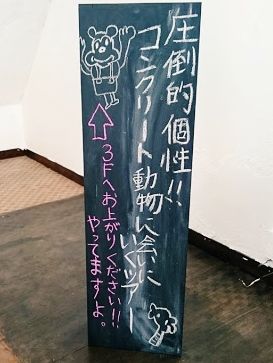 圧倒的個性!!
コンクリート動物に会いに
いくツアー
3Fへお上がりください!!
やってますよ。